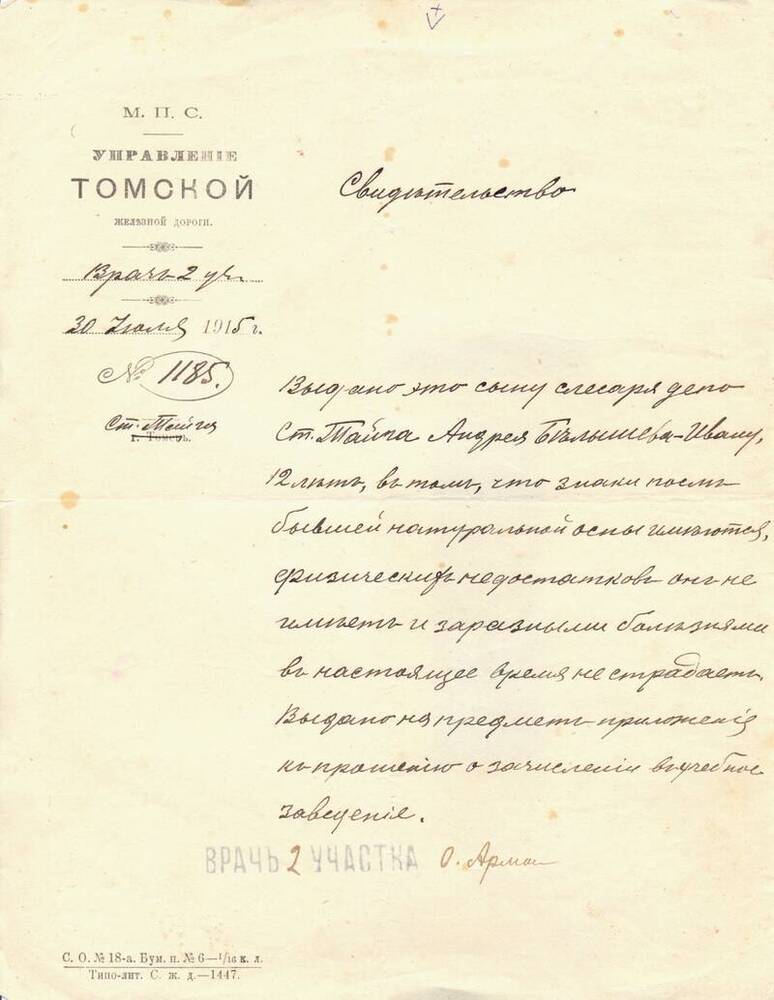 М. П. С.
УПРАВЛЕНІЕ
ТОМСКОЙ
ЖЕЛѢЗНОЙ ДОРОГИ.
Врачъ 2 уч.
30 Іюля 1915 г.
№ 1185.
Ст. Тайга
г. Томскъ.
Свидѣтельство
Выдано это сыну слесаря депо
Ст. Тайга Андрея Бѣлышева-Ивану,
12 лѣтъ, въ томъ, что знаки послѣ
бывшей натуральной оспы имѣются,
физическихъ недостатковъ онъ не
имѣетъ и заразными болѣзнями
въ настоящее время не страдаетъ.
Выдано на предметъ приложенія
къ прошенію о зачисленіи въ учебное
заведеніе.
ВРАЧЪ 2 УЧАСТКА О.
С. О. № 18-а. Бум. п. № 6—1/16 к. л.
Типо-лит. С. ж. д.—1447.